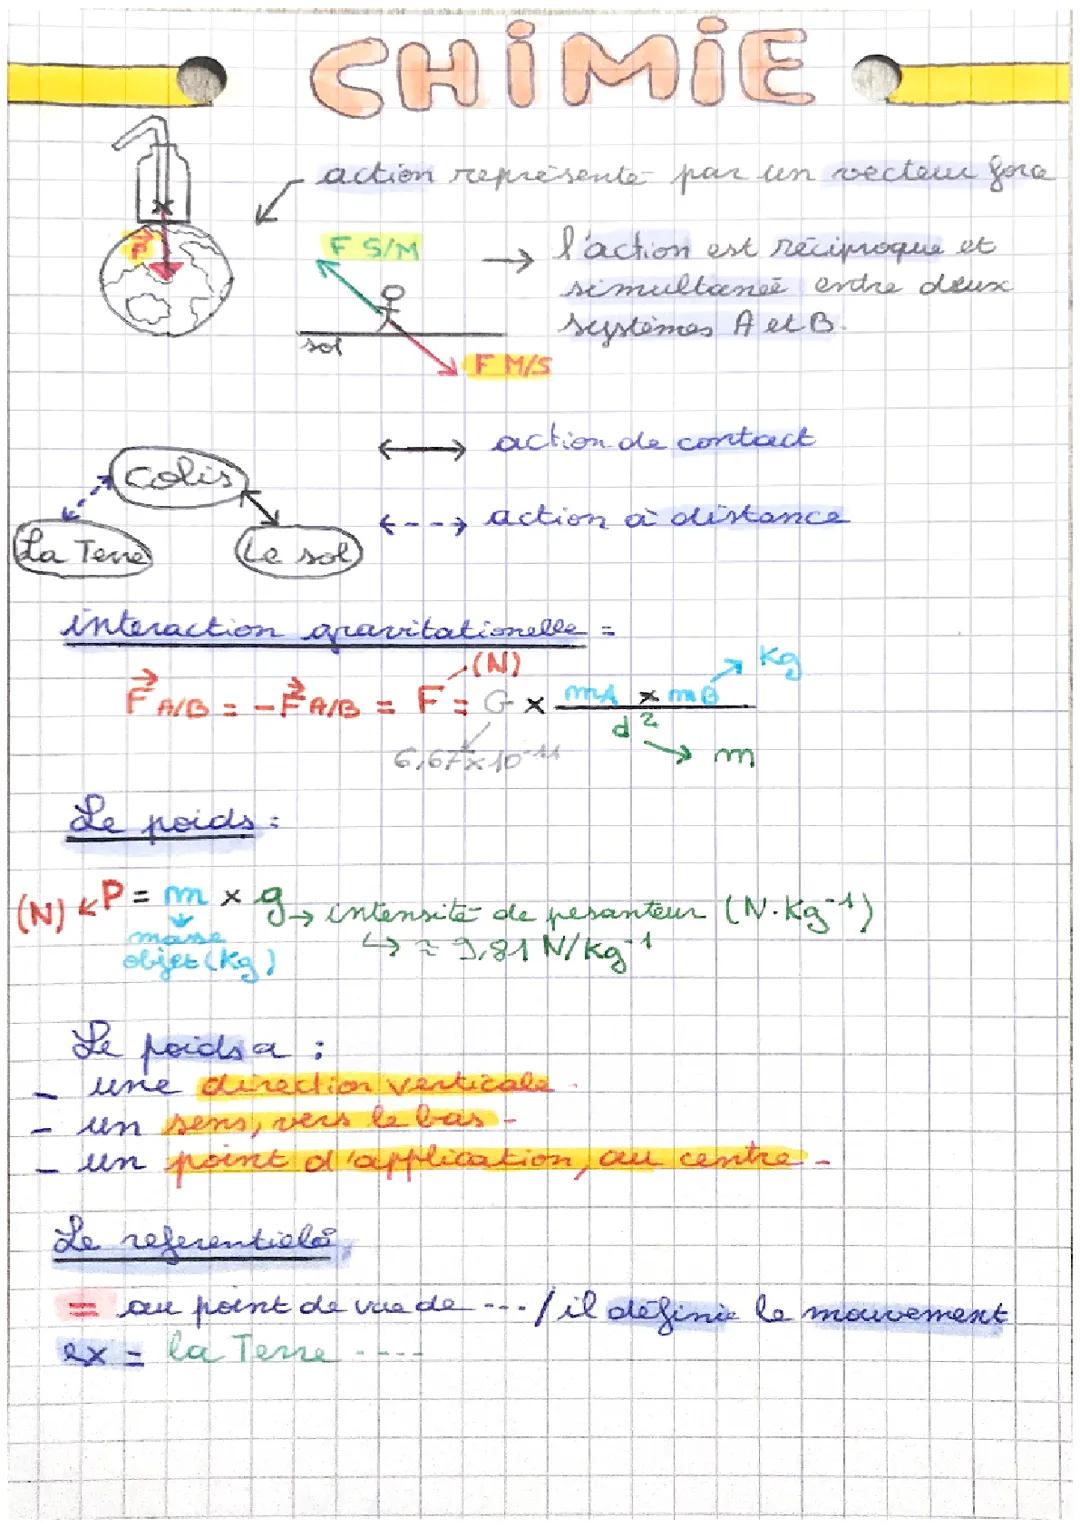 CHiMiE
action représenté par un vecteur force
P
F S/M
→ l'action est réciproque et
simultaneé entre deux
systèmes A et B.
sol
F M/S
action de contact
Colis
action à distance
La Terre
Le sol
interaction gravitationelle =
(N)
Kg
F A/B = -F A/B = F = G × mA × mB
d²
6,67×10⁻¹¹
m
Le poids :
(N) P = m × g → intensité de pesanteur (N.Kg⁻¹)
masse
↳ ≈ 9,81 N/Kg⁻¹
objet (Kg)
Le poids a :
- une direction verticale.
- un sens, vers le bas -
- un point d'application, au centre -
Le referentiel
= au point de vue de --- / il définie le mouvement
ex = la Terre ----